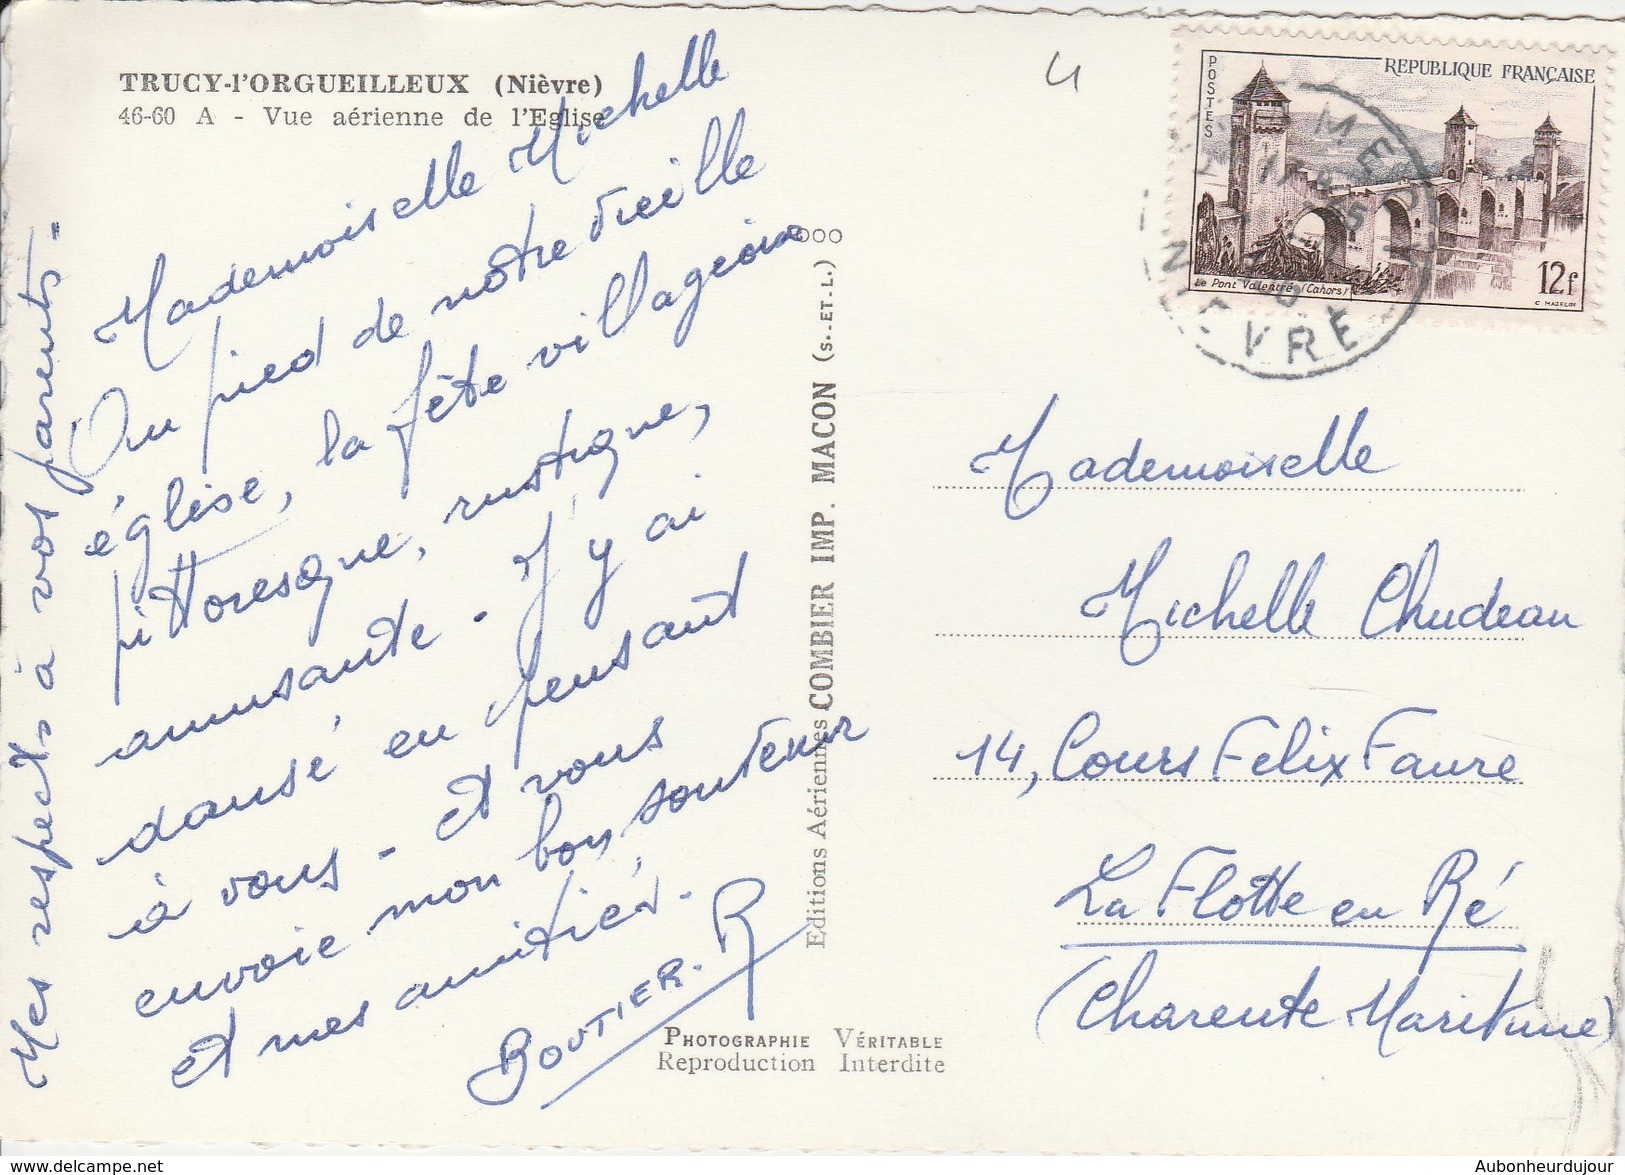 TRUCY-l'ORGUEILLEUX (Nièvre)
46-60 A - Vue aérienne de l'Eglise
Mademoiselle Michelle
Au pied de notre vieille
église, la fête villageoise
pittoresque, rustique,
amusante - J'y ai
dansé en pensant
à vous - Et vous
envoie mon bon souvenir
et mes amitiés.
BOUTIER. R
Mes respects à vos parents -
Editions Aériennes COMBIER IMP. MACON (S.-ET-L.)
PHOTOGRAPHIE VÉRITABLE
Reproduction Interdite
4
POSTES
REPUBLIQUE FRANÇAISE
Le Pont Valentré (Cahors)
12f
C. MAZELIN
NIEVRE
Mademoiselle
Michelle Chudeau
14, Cours Felix Faure
La Flotte en Ré
(Charente Maritime)
www.delcampe.net
Aubonheurdujour